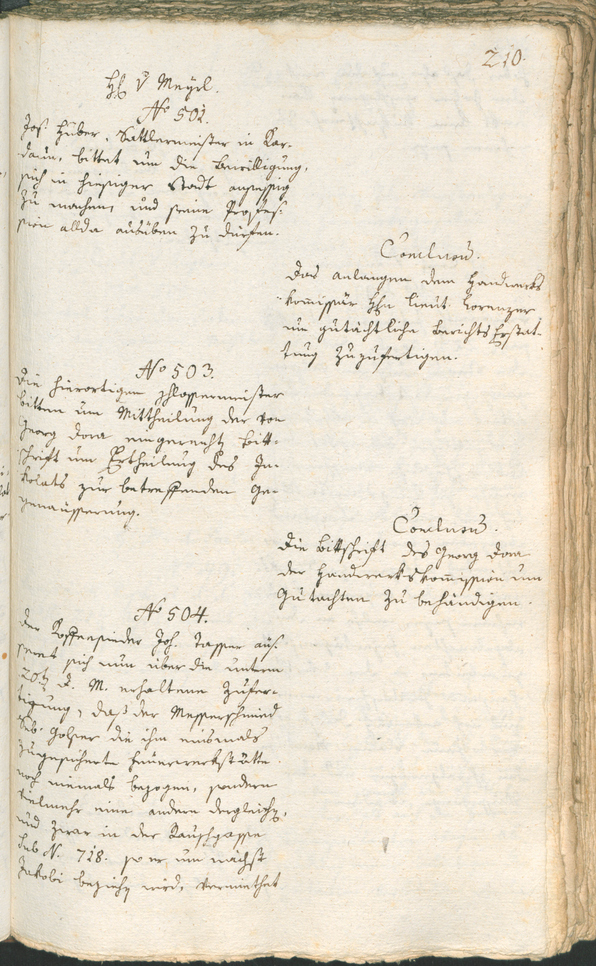 210.
H v Meyrl.
No 502.
Jos. Huber, Sattlermeister in Kar-
daun, bittet um die Bewilligung,
sich in hiesiger Stadt ansessig
zu machen, und seine Profes-
sion allda ausüben zu dürfen.
Conclusum.
Das anlangen dem Handwerks
kommissär Hrn lieut. Lorenzer
um gutächtliche Berichts Erstat-
tung zuzufertigen.
No 503.
Die hierortigen Schlossermeister
bitten um Mittheilung der von
Georg Dora eingereicht Bitt-
schrift um Ertheilung des In-
kolats zur betreffenden Ge-
genäusserung.
Conclusum.
Die Bittschrift des Georg Dora
der Handwerkskommission um
Gutachten zu behändigen.
No 504.
Der Joh. Tasser aus-
seret sich nun über die unterm
20t d. M. erhaltene Zufer-
tigung, daß der Messerschmied
Seb. Holzer die ihm einsmals
zugesicherte Feuerwerkstätte
noch niemals bezogen, sondern
vielmehr eine andere dergleichen,
und zwar in der Rauschgasse
sub N. 728. so er um nächst
Jakobi beziehen wird, vermiethet